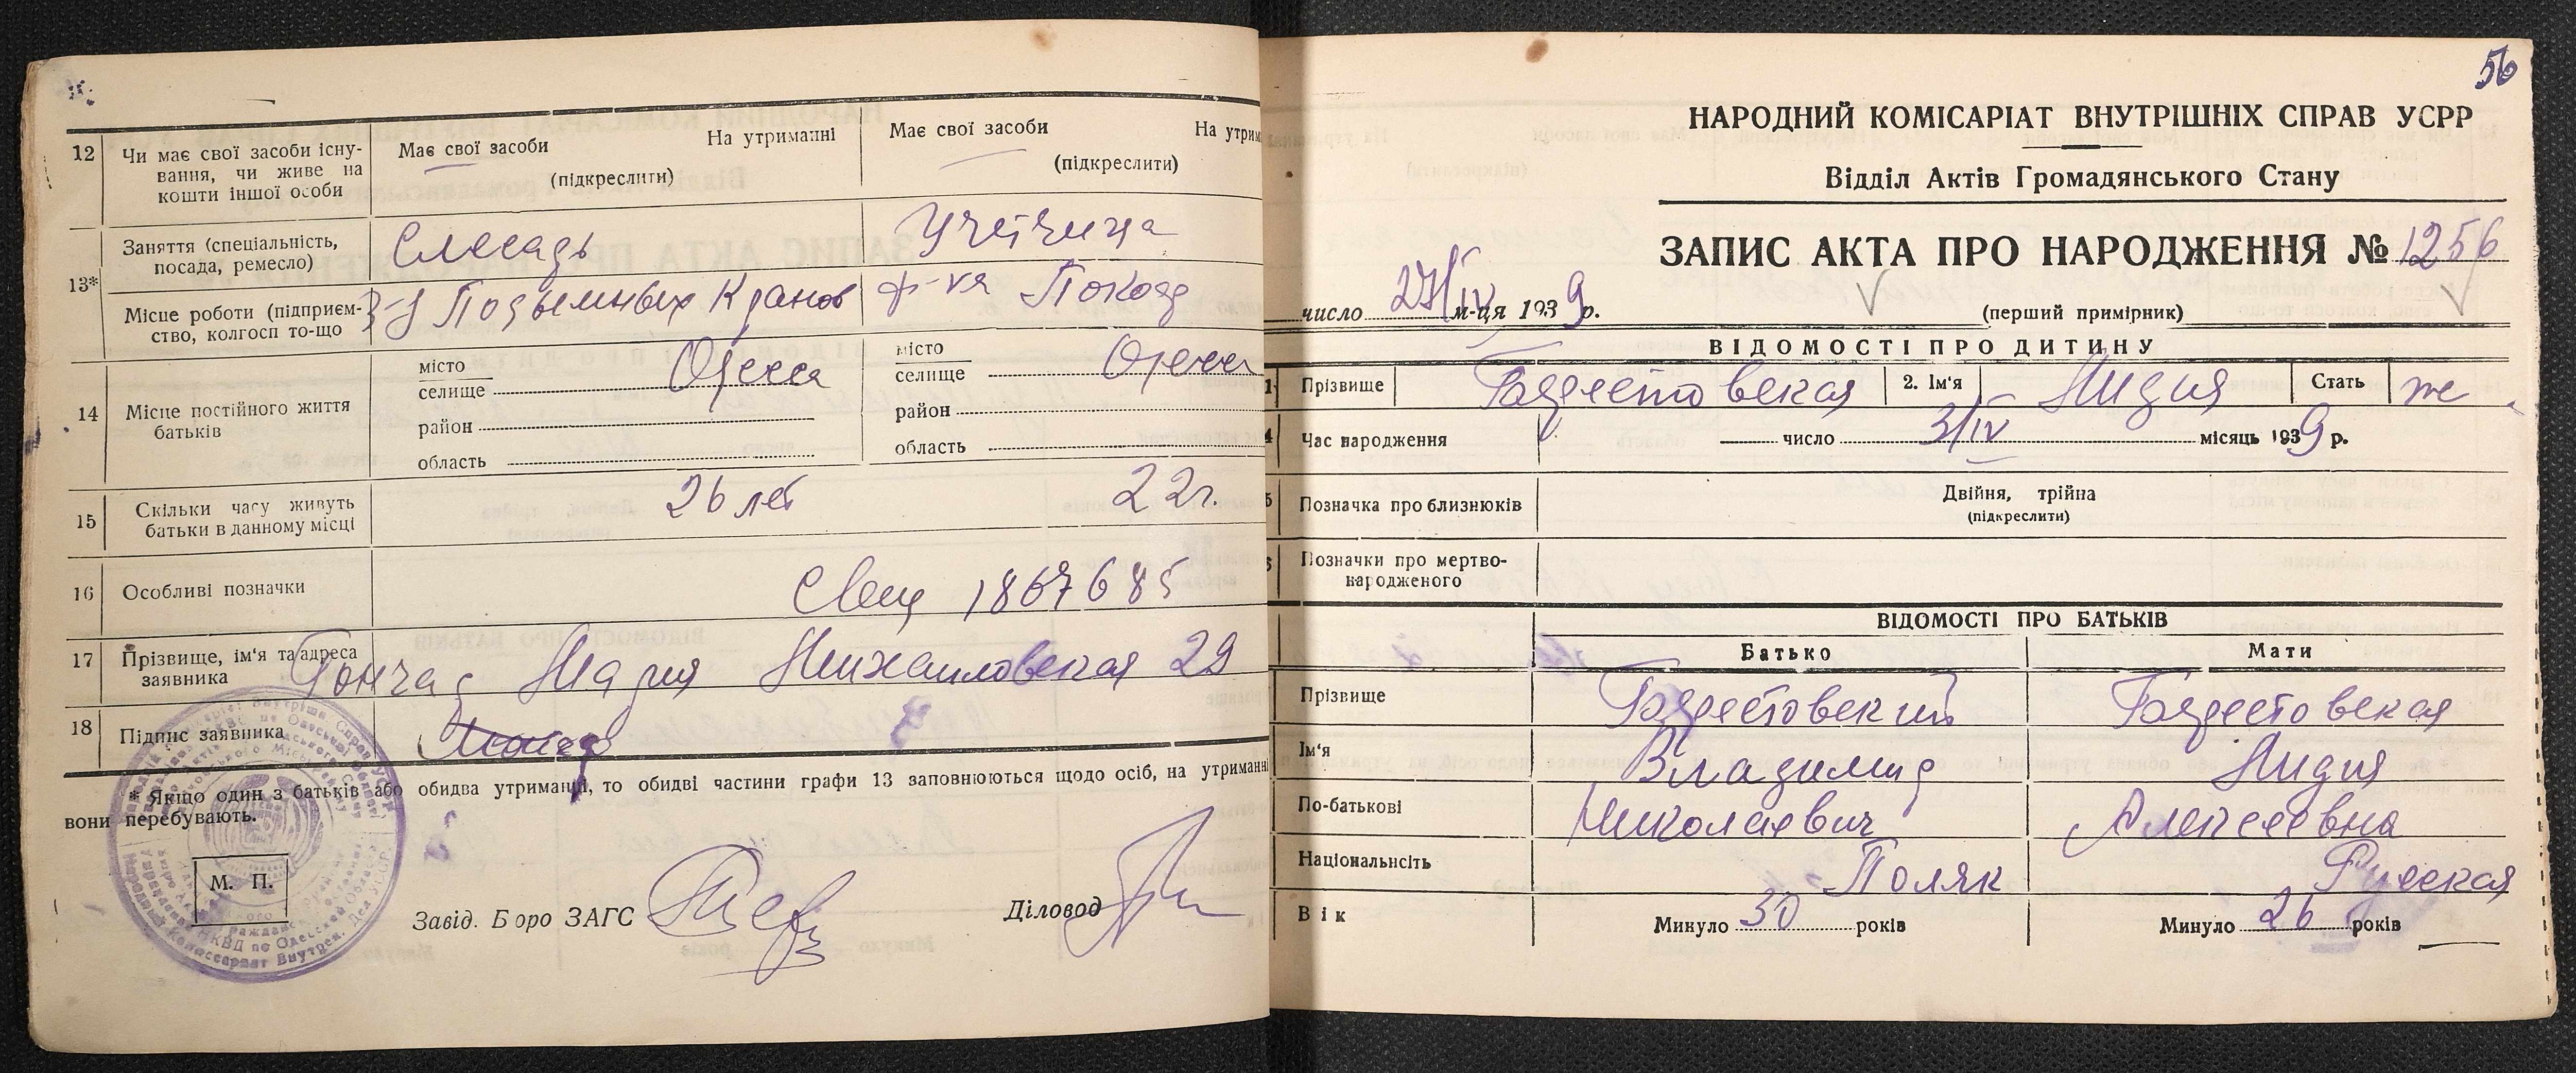 12
Чи має свої засоби існу-
вання, чи живе на
кошти іншої особи
Має свої засоби На утриманні
(підкреслити)
Має свої засоби На утрим
(підкреслити)
13*
Заняття (спеціальність,
посада, ремесло)
Слесарь
Учетчица
Місце роботи (підприєм-
ство, колгосп то-що
З-д Подъемных Кранов
ф-ка
14
Місце постійного життя
батьків
місто
селище Одесса
район
область
місто
селище Одесса
район
область
15
Скільки часу живуть
батьки в данному місці
26 лет
22 г.
16
Особливі позначки
1867685
17
Прізвище, ім'я та адреса
заявника
Гончар Мария Михайловская 29
18
Підпис заявника
* Якщо один з батьків або обидва утриманці, то обидві частини графи 13 заповнюються щодо осіб, на утриманні
вони перебувають.
М. П.
Завід. Бюро ЗАГС
Діловод
56
НАРОДНИЙ КОМІСАРІАТ ВНУТРІШНІХ СПРАВ УСРР
Відділ Актів Громадянського Стану
ЗАПИС АКТА ПРО НАРОДЖЕННЯ № 1256
число 27/IV м-ця 1939 р.
(перший примірник)
ВІДОМОСТІ ПРО ДИТИНУ
Прізвище
2. Ім'я Лидия
Стать ж
Час народження
число 3/IV місяць 1939 р.
Позначка про близнюків
Двійня, трійна
(підкреслити)
Позначки про мертво-
народженого
ВІДОМОСТІ ПРО БАТЬКІВ
Батько Мати
Прізвище
Ім'я Владимир Лидия
По-батькові Николаевич Алексеевна
Національнсіть Поляк Русская
Вік Минуло 30 років Минуло 26 років